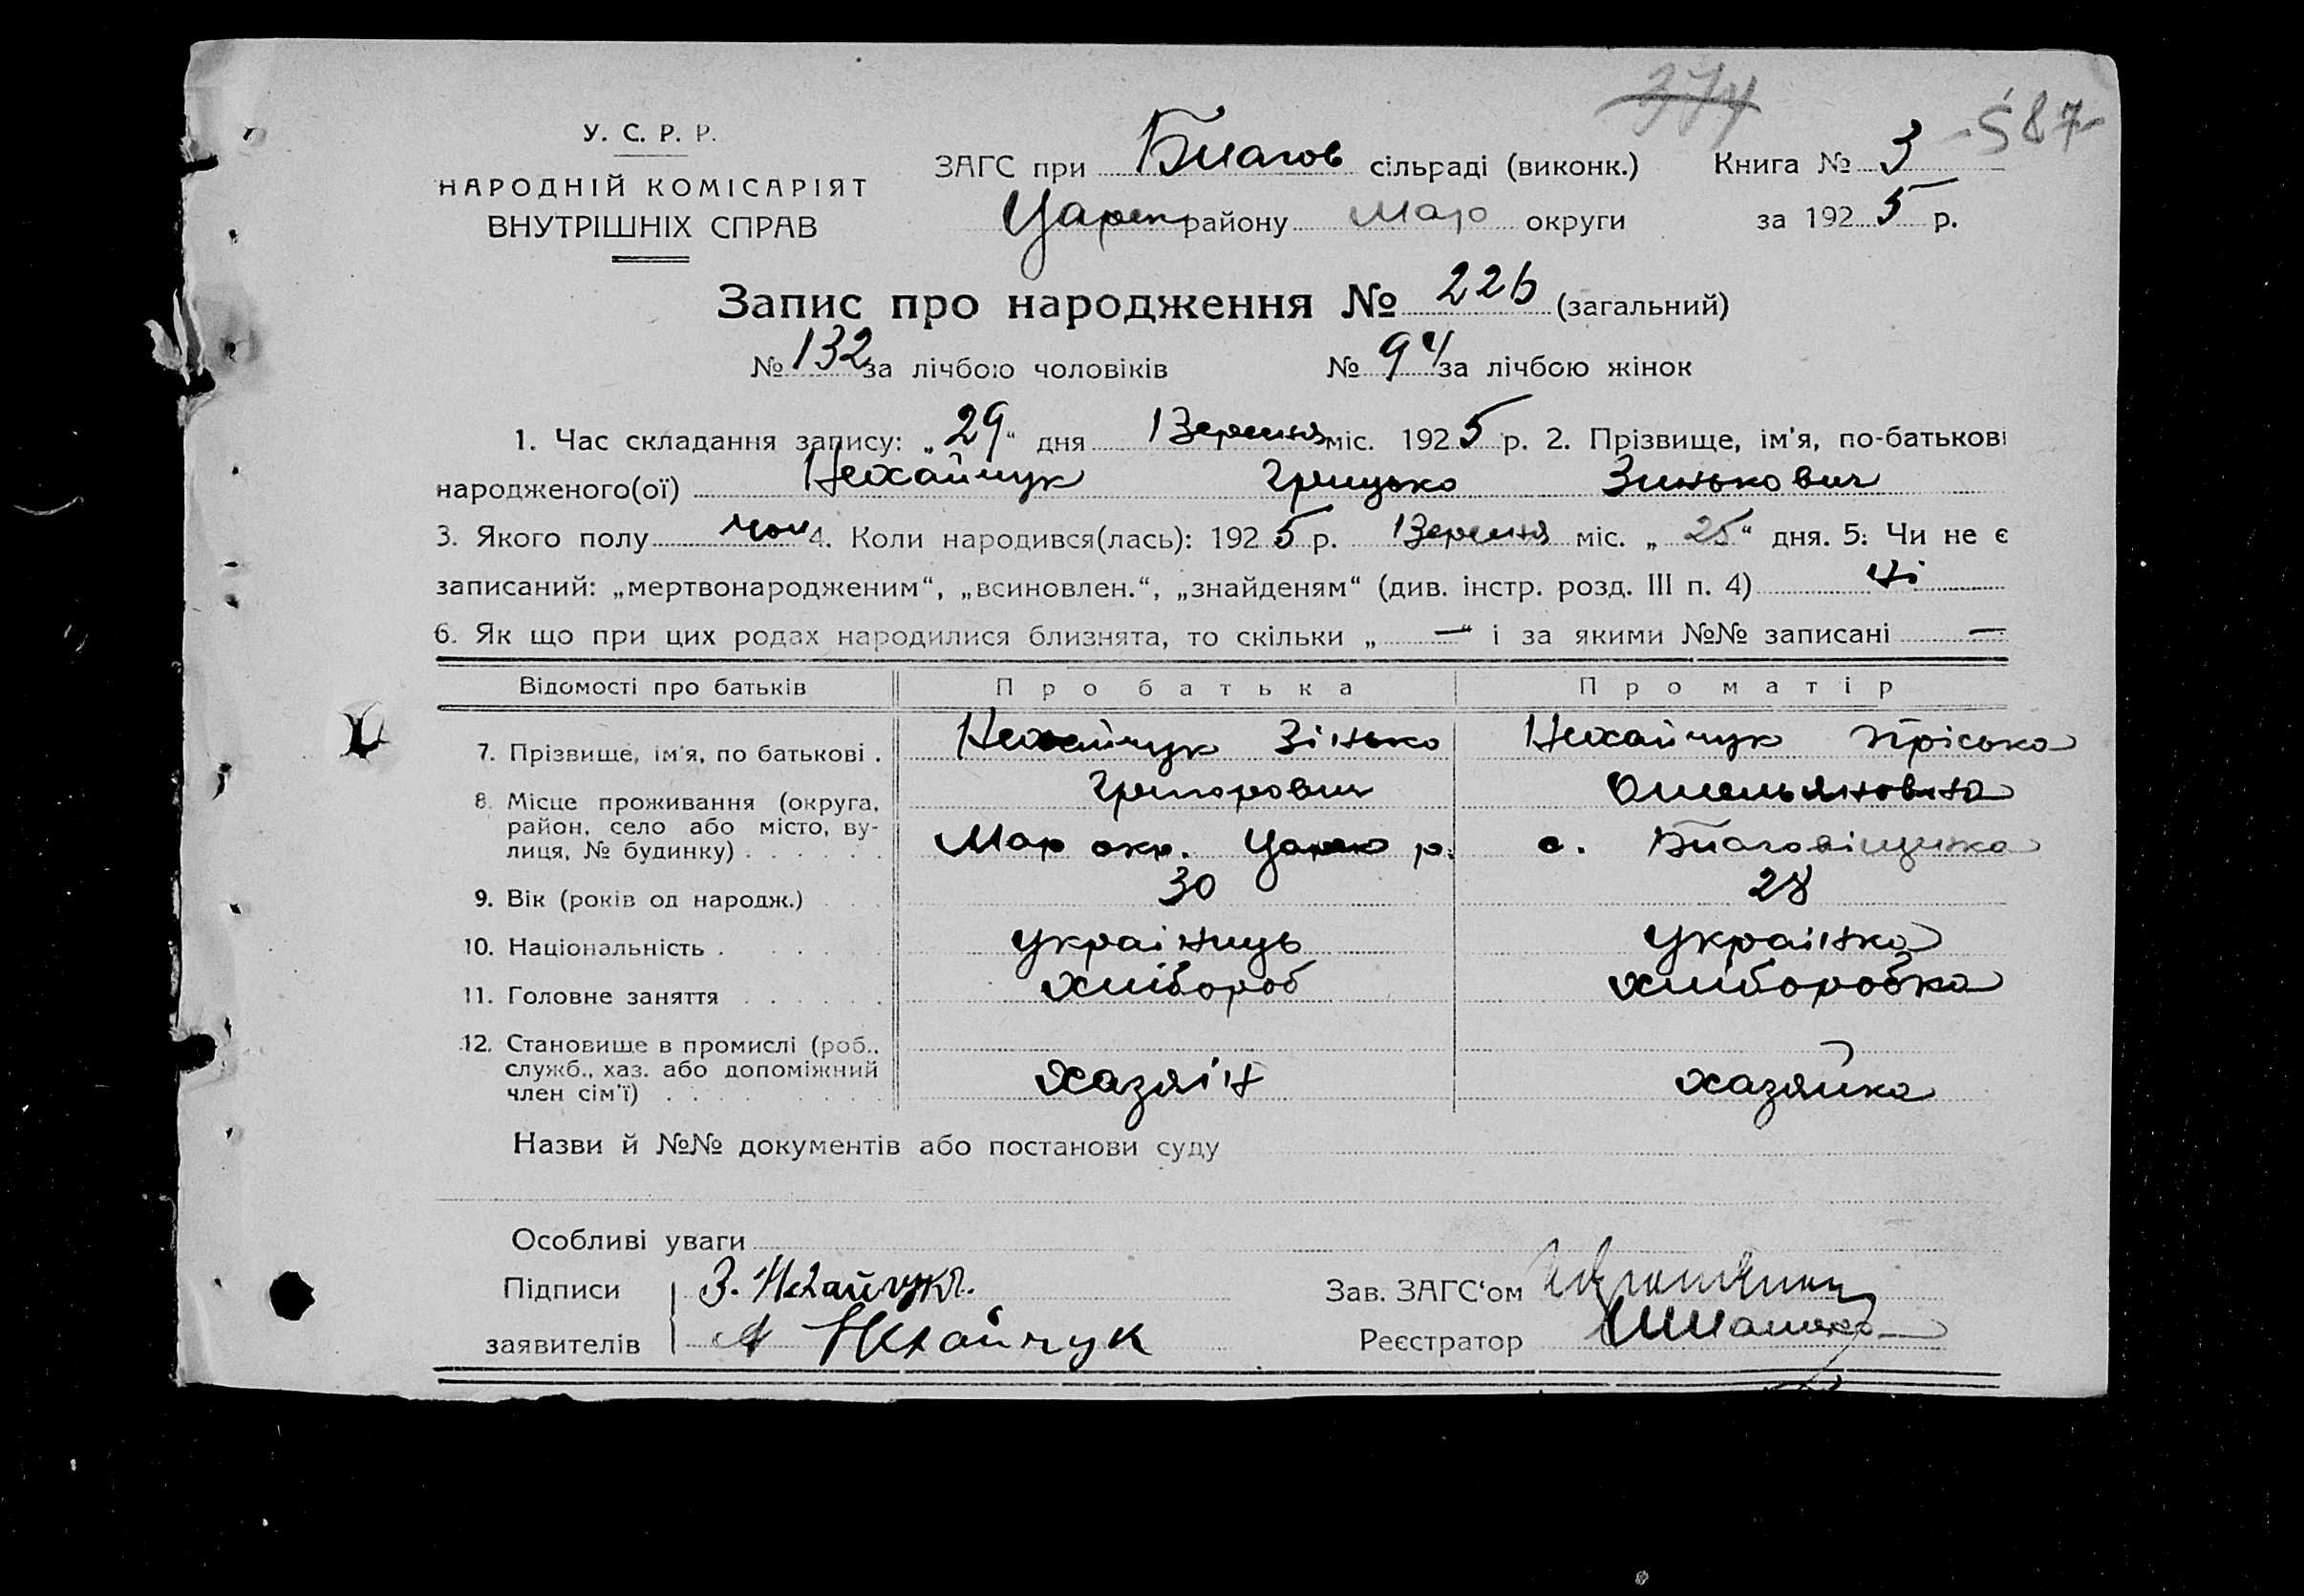 374 -587-
У. С. Р. Р.
НАРОДНІЙ КОМІСАРІЯТ
ВНУТРІШНІХ СПРАВ
ЗАГС при Благов сільраді (виконк.) Книга № 3
Царек району Мар округи за 1925 р.
Запис про народження № 226 (загальний)
№ 132 за лічбою чоловіків № 94 за лічбою жінок
1. Час складання запису: „29“ дня Вересня міс. 1925 р. 2. Прізвище, ім'я, по-батькові
народженого(ої) Нехайчук Грицько Зинькович
3. Якого полу чол 4. Коли народився(лась): 1925 р. Вересня міс. „25“ дня. 5. Чи не є
записаний: „мертвонародженим“, „всиновлен.“, „знайденям“ (див. інстр. розд. III п. 4) ні
6. Як що при цих родах народилися близнята, то скільки „—“ і за якими №№ записані —
Відомості про батьків Про батька Про матір
7. Прізвище, ім'я, по батькові . Нехайчук Зінько Нехайчук Пріська
Григорович Омельяновна
8. Місце проживання (округа,
район, село або місто, ву-
лиця, № будинку) . . . . . . Мар окр. Царек р. с. Благовіщинка
9. Вік (років од народж.) . . . 30 28
10. Національність . . . . . українець українка
11. Головне заняття . . . . . . хлібороб хлиборобка
12. Становище в промислі (роб.,
служб., хаз. або допоміжний
член сім'ї) . . . . . . . . . хазяін хазяйка
Назви й №№ документів або постанови суду
Особливі уваги
Підписи З. Нехайчук. Зав. ЗАГС'ом
заявителів А Нехайчук Реєстратор